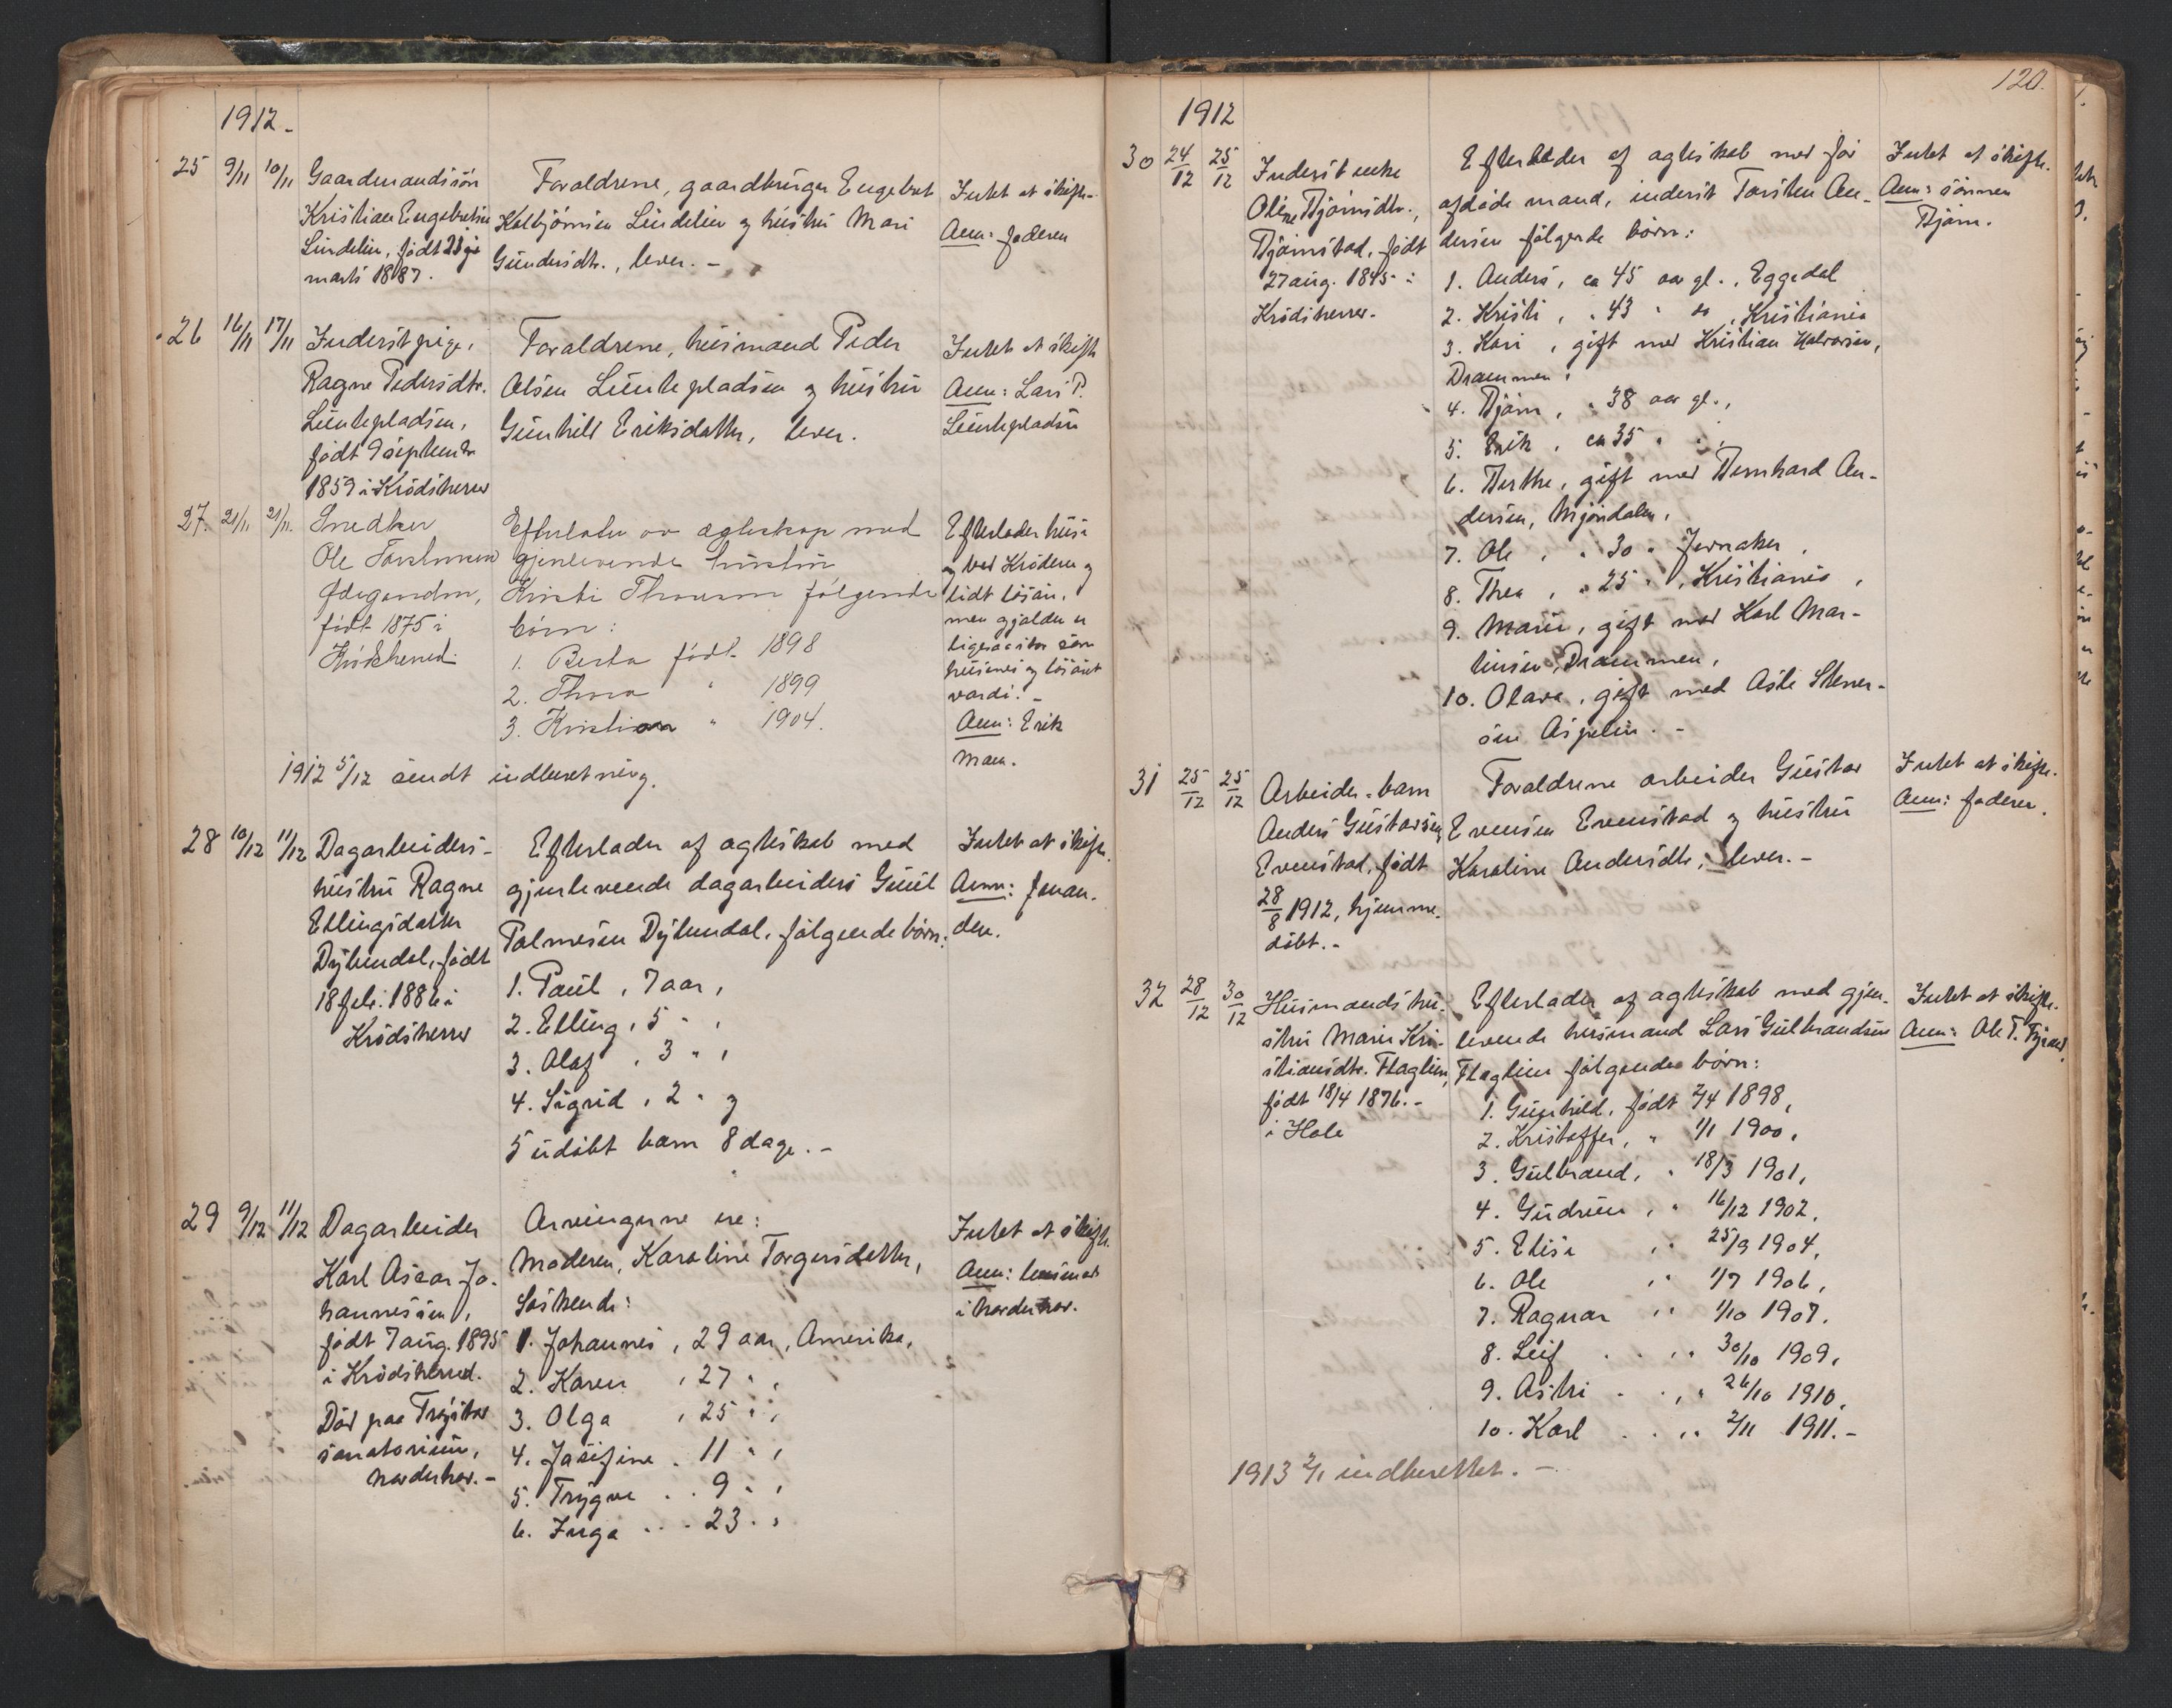 1912.
25 9/11 10/11 Gaardmandssön
Kristian Engebretsen
Lindelien, födt 23je
marts 1887.
Forældrene, gaardbruger Engebret
Kolbjörnsen Lindelien og hustru Mari
Gundersdtr., lever. -
Intet at skifte.
Anm: faderen
26 16/11 17/11 Inderstpige,
Ragne Pedersdtr.
Luntepladsen,
født 9 septembr
1859 i Krödsherred
Forældrene, husmand Peder
Olsen Luntepladsen og hustru
Gunhild Eriksdatter, lever.
Intet at skifte
Anm: Lars P.
Luntepladsen
27. 21/11 21/11. Snedker
Ole Torstensen
født 1875 i
Krødsherred.
Efterlader av ægteskap med
gjenlevende hustru
Kristi Thoresen følgende
børn:
1. Berta født 1898
2. Thora " 1899
3. Kristian " 1904.
Efterlader hus
ved Kröderen og
lidt lösöre,
men gjælden er
ligesaa stor som
husenes og lösöret
værdi. -
Anm: Erik
Moen.
1912 5/12 sendt indberetning.
28 10/12 11/12 Dagarbeiders-
hustru Ragne
Ellingsdatter
Dybendal, født
18 feb. 1886 i
Krödsherred
Efterlader af ægteskab med
gjenlevende dagarbeiders Gulik
Palmesen Dybendal, følgende børn:
1. Paul, 7 aar,
2. Elling, 5 " ,
3. Olaf, 3 " ,
4. Sigrid, 2 " og
5 udøbt barn 8 dage. -
Intet at skifte.
Anm: fman-
den.
29 9/12 11/12 Dagarbeider
Karl Oscar Jo-
hannessen,
født 7 aug. 1895
i Krödsherred.
Död paa
sanatorium,
Norderhov. -
Arvingerne ere:
Moderen, Karoline Torgersdatter,
Söskende:
1. Johannes, 29 aar, Amerika,
2. Karen , 27 " ,
3. Olga , 25 " ,
4. Josefine . 11 " ,
5. Trygve . . 9 " ,
6. Inga . . . 23 . ,
Intet at skifte.
Anm: lensmand
i Norderhov.
120.
1912
30 24/12 25/12 Inderst enke
Oline Bjørnsdtr.,
Bjørnstad, født
27 aug. 1845 i
Krödsherred.
Efterlader af ægteskab med før
afdøde mand, inderst Torsten An-
dersen følgende børn:
1. Anders, ca 45 aar gl., Eggedal
2. Kristi, " 43 " do, Kristiania
3. Kari, gift med Kristian Halvorsen,
Drammen,
4. Bjørn, " 38 aar gl.,
5. Erik, ca 35 " ",
6. Berthe, gift med Bernhard An-
dersen, Mjøndalen,
7. Ole, " 30 " Jevnaker,
8. Thea, " 25 " , Kristiania,
9. Marie, gift med Karl Mar-
tinsen, Drammen,
10. Olava, gift med Asle Stener-
sen Aspelien. -
Intet at skifte.
Anm: sönnen
Bjørn.
31 25/12 25/12 Arbeider-barn
Anders Gustavsen
Evenstad, født
28/8 1912, hjemme-
døbt. -
Forældrene arbeider Gustav
Evensen Evenstad og hustru
Karoline Andersdtr, lever. -
Intet at skifte.
Anm: faderen.
32 28/12 30/12 Husmandshu-
stru Marie Kri-
stiansdtr. Flaglien,
født 18/4 1876. -
i Hole
Efterlader af ægteskab med gjen-
levende husmand Lars Gulbrandsen
Flaglien følgende børn:
1. Gunhild, født 7/4 1898,
2. Kristoffer, " 1/1 1900,
3. Gulbrand, " 18/3 1901,
4. Gudrun, " 16/12 1902,
5. Elise ," 25/9 1904,
6. Ole ," 1/7 1906,
7. Ragnar ," 1/10 1907.
8. Leif . . ," 30/10 1909,
9. Astri . . , " 26/10 1910,
10. Karl . . ," 2/11 1911. -
Intet at skifte.
Anm: Ole T.
1913 2/1 indberettet. -